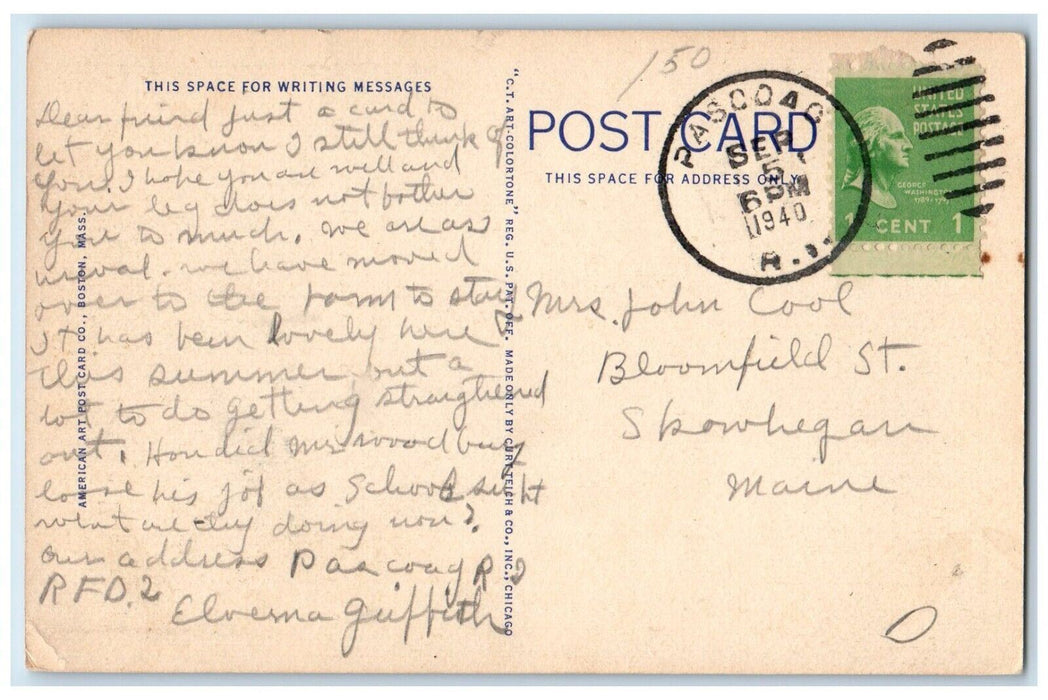 THIS SPACE FOR WRITING MESSAGES
Dear friend Just a card to
let you know I still think of
you. I hope you are well and
your leg does not bother
you to much. we are as
usual. we have moved
over to the farm to stay
It has been lovely here
this summer but a
lot to do getting straightened
out. How did Mr woodbury
loose his job as School supt
what are they doing now?
our address Pascoag R I
RFD.2
Elverna Griffith
AMERICAN ART POST CARD CO., BOSTON, MASS.
"C.T. ART-COLORTONE" REG. U.S. PAT. OFF. MADE ONLY BY CURT TEICH & CO., INC., CHICAGO
150
POST CARD
THIS SPACE FOR ADDRESS ONLY
PASCOAG
SEP
5
6PM
1940
R.I.
UNITED
STATES
POSTAGE
GEORGE
WASHINGTON
1789-1797
1 CENT 1
Mrs. John Cool
Bloomfield St.
Skowhegan
Maine